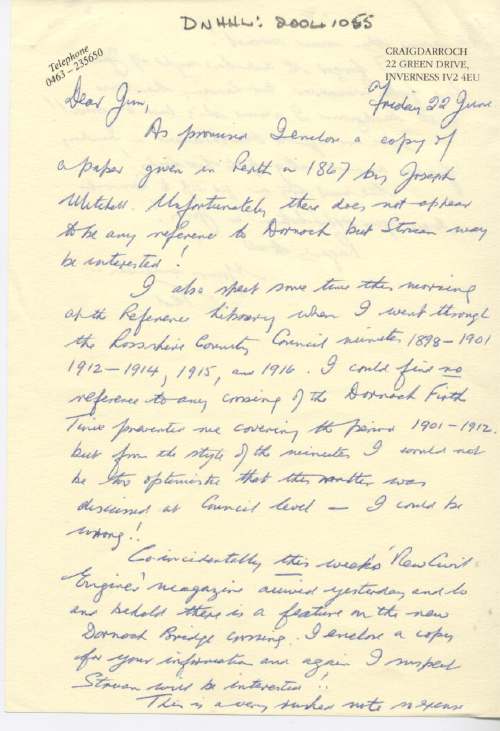 DNHHL: 2004.1055
Telephone
0463 - 235650
CRAIGDARROCH
22 GREEN DRIVE,
INVERNESS IV2 4EU
Friday 22 June
Dear Jim,
As promised I enclose a copy of
a paper given in Perth in 1867 by Joseph
Mitchell. Unfortunately there does not appear
to be any reference to Dornoch but Struan may
be interested!
I also spent some time this morning
at the Reference Library when I went through
the Ross-shire County Council minutes 1898-1901
1912-1914, 1915, and 1916. I could find no
reference to any crossing of the Dornoch Firth
Time prevented me covering the period 1901-1912.
but from the style of the minutes I would not
be too optimistic that this matter was
discussed at Council level - I could be
wrong!!
Co-incidentally this week's 'New Civil
Engineer' magazine arrived yesterday and lo
and behold there is a feature on the new
Dornoch Bridge crossing. I enclose a copy
for your information and again I suspect
Struan will be interested!!
This is a very rushed note so excuse